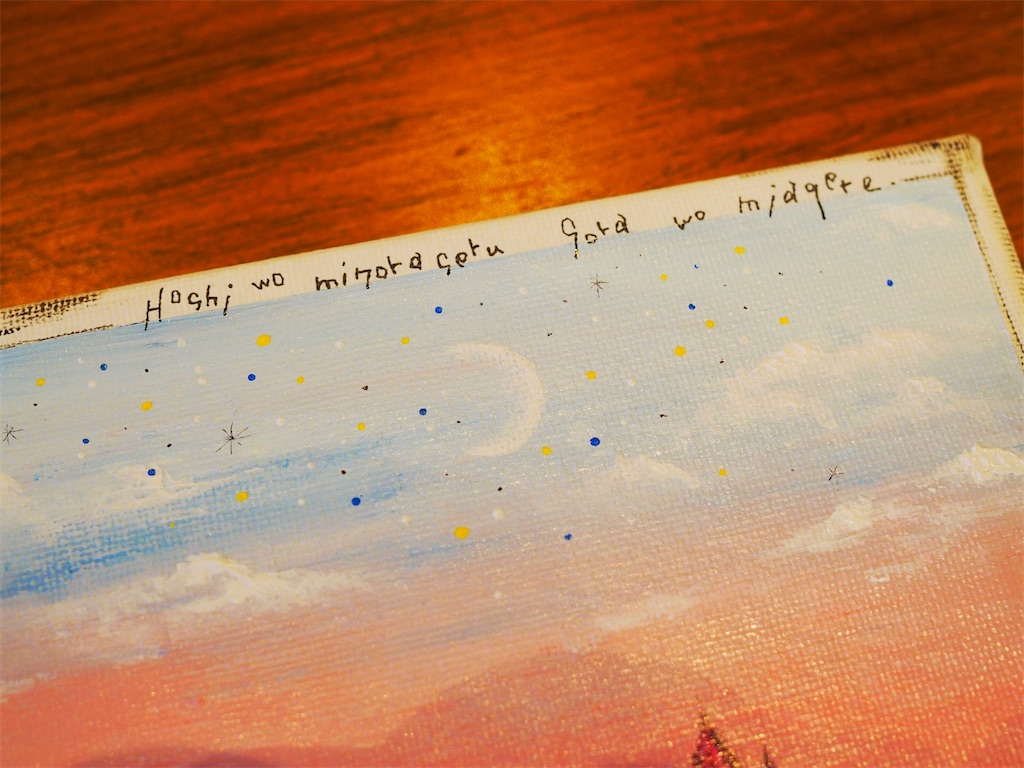 Hoshi wo minorageru Sora wo miagere.